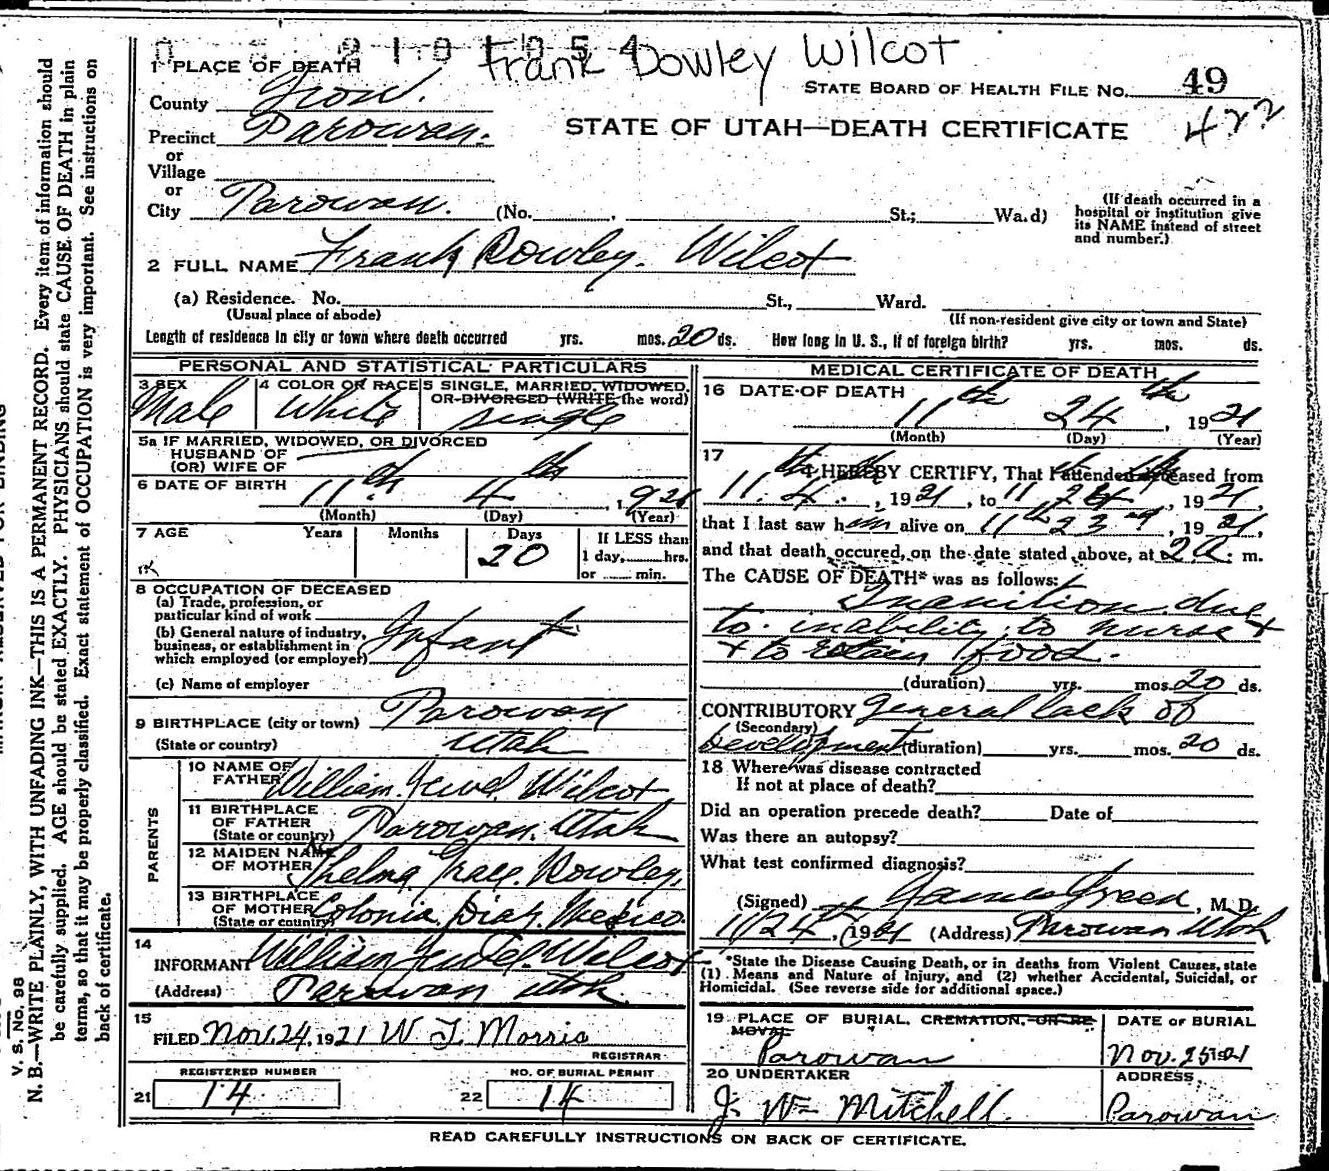 Frank Dowley Wilcot
1 PLACE OF DEATH
STATE BOARD OF HEALTH FILE No. 49
422
County Iron.
Precinct Parowan.
STATE OF UTAH—DEATH CERTIFICATE
or
Village
or
City Parowan. (No. , St.; Wa.d)
(If death occurred in a hospital or institution give its NAME instead of street and number.)
2 FULL NAME Frank Rowley. Wilcot
(a) Residence. No. St., Ward.
(Usual place of abode) (If non-resident give city or town and State)
Length of residence in city or town where death occurred yrs. mos. 20 ds. How long in U. S., if of foreign birth? yrs. mos. ds.
PERSONAL AND STATISTICAL PARTICULARS
3 SEX Male
4 COLOR OR RACE White
5 SINGLE, MARRIED, WIDOWED, OR DIVORCED (WRITE the word) single
5a IF MARRIED, WIDOWED, OR DIVORCED
HUSBAND OF
(OR) WIFE OF
6 DATE OF BIRTH 11th 4th , 1921
(Month) (Day) (Year)
7 AGE Years Months Days 20
If LESS than
1 day, hrs.
or min.
8 OCCUPATION OF DECEASED
(a) Trade, profession, or
particular kind of work
(b) General nature of industry,
business, or establishment in
which employed (or employer) Infant
(c) Name of employer
9 BIRTHPLACE (city or town) Parowan
(State or country) Utah
PARENTS
10 NAME OF
FATHER William Jewel Wilcot
11 BIRTHPLACE
OF FATHER
(State or country) Parowan, Utah
12 MAIDEN NAME
OF MOTHER Thelma Grace Rowley.
13 BIRTHPLACE
OF MOTHER
(State or country) Colonia Diaz, Mexico.
14
INFORMANT William Jewel Wilcot
(Address) Parowan Utah
15
FILED Nov. 24, 1921 W J Morris
REGISTRAR
REGISTERED NUMBER
21 14
NO. OF BURIAL PERMIT
22 14
MEDICAL CERTIFICATE OF DEATH
16 DATE OF DEATH
11th 24th , 1921
(Month) (Day) (Year)
17
I HEREBY CERTIFY, That I attended deceased from
11th 4th, 1921, to 11th 24th, 1921,
that I last saw him alive on 11th 23rd, 1921,
and that death occured, on the date stated above, at 2 a. m.
The CAUSE OF DEATH* was as follows:
Inanition due
to inability to nurse +
+ to retain food.
(duration) yrs. mos. 20 ds.
CONTRIBUTORY General lack of
(Secondary)
Development (duration) yrs. mos. 20 ds.
18 Where was disease contracted
If not at place of death?
Did an operation precede death? Date of
Was there an autopsy?
What test confirmed diagnosis?
(Signed) James Green, M. D.
11/24th, 1921 (Address) Parowan Utah
*State the Disease Causing Death, or in deaths from Violent Causes, state
(1) Means and Nature of Injury, and (2) whether Accidental, Suicidal, or
Homicidal. (See reverse side for additional space.)
19 PLACE OF BURIAL, CREMATION, OR REMOVAL
Parowan
DATE OF BURIAL
Nov. 25 1921
20 UNDERTAKER
J. Wm Mitchell.
ADDRESS,
Parowan
READ CAREFULLY INSTRUCTIONS ON BACK OF CERTIFICATE.
V. S. No. 98
N. B.—WRITE PLAINLY, WITH UNFADING INK—THIS IS A PERMANENT RECORD. Every item of information should
be carefully supplied. AGE should be stated EXACTLY. PHYSICIANS should state CAUSE OF DEATH in plain
terms, so that it may be properly classified. Exact statement of OCCUPATION is very important. See instructions on
back of certificate.